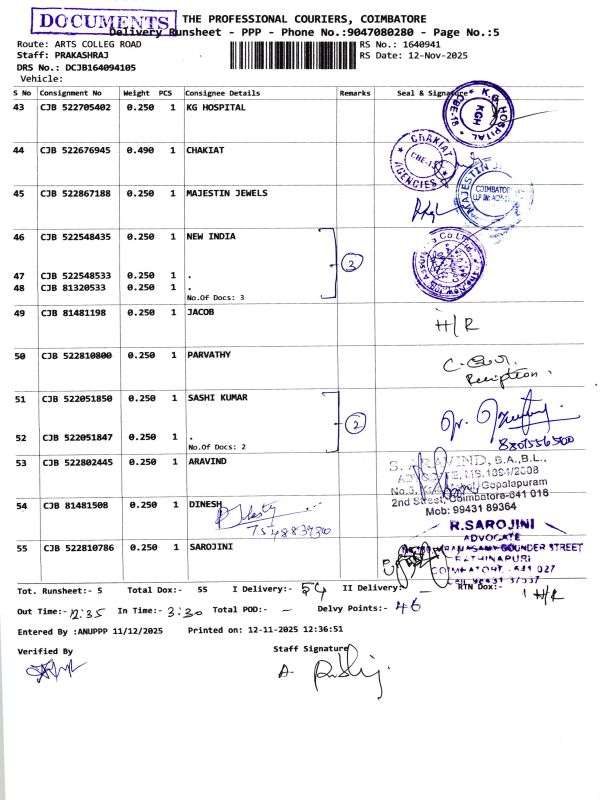 DOCUMENTS
THE PROFESSIONAL COURIERS, COIMBATORE
Delivery Runsheet - PPP - Phone No.:9047080280 - Page No.:5
Route: ARTS COLLEG ROAD
RS No.: 1640941
Staff: PRAKASHRAJ
RS Date: 12-Nov-2025
DRS No.: DCJB164094105
Vehicle:
S No Consignment No Weight PCS Consignee Details Remarks Seal & Signature
43 CJB 522705402 0.250 1 KG HOSPITAL
K.G. HOSPITAL
KGH
CBE-18
44 CJB 522676945 0.490 1 CHAKIAT
CHAKIAT AGENCIES
CBE-18
45 CJB 522867188 0.250 1 MAJESTIN JEWELS
MAJESTIN
COIMBATORE
46 CJB 522548435 0.250 1 NEW INDIA
47 CJB 522548533 0.250 1 .
48 CJB 81320533 0.250 1 .
No.Of Docs: 3
3
49 CJB 81481198 0.250 1 JACOB
H/R
50 CJB 522810800 0.250 1 PARVATHY
Reception.
51 CJB 522051850 0.250 1 SASHI KUMAR
52 CJB 522051847 0.250 1 .
No.Of Docs: 2
2
53 CJB 522802445 0.250 1 ARAVIND
S. ARAVIND, B.A.,B.L.,
ADVOCATE, MS.1884/2008
Gopalapuram
2nd Street, Coimbatore-641 018
Mob: 99431 89364
54 CJB 81481508 0.250 1 DINESH
R.SAROJINI
ADVOCATE
55 CJB 522810786 0.250 1 SAROJINI
GOUNDER STREET
RATHINAPURI
COIMBATORE - 641 027
Tot. Runsheet:- 5 Total Dox:- 55 I Delivery:- 54 II Delivery:- — RTN Dox:- 1 H/R
Out Time:- 12:35 In Time:- 3:30 Total POD:- - Delvy Points:- 46
Entered By :ANUPPP 11/12/2025 Printed on: 12-11-2025 12:36:51
Verified By
Staff Signature